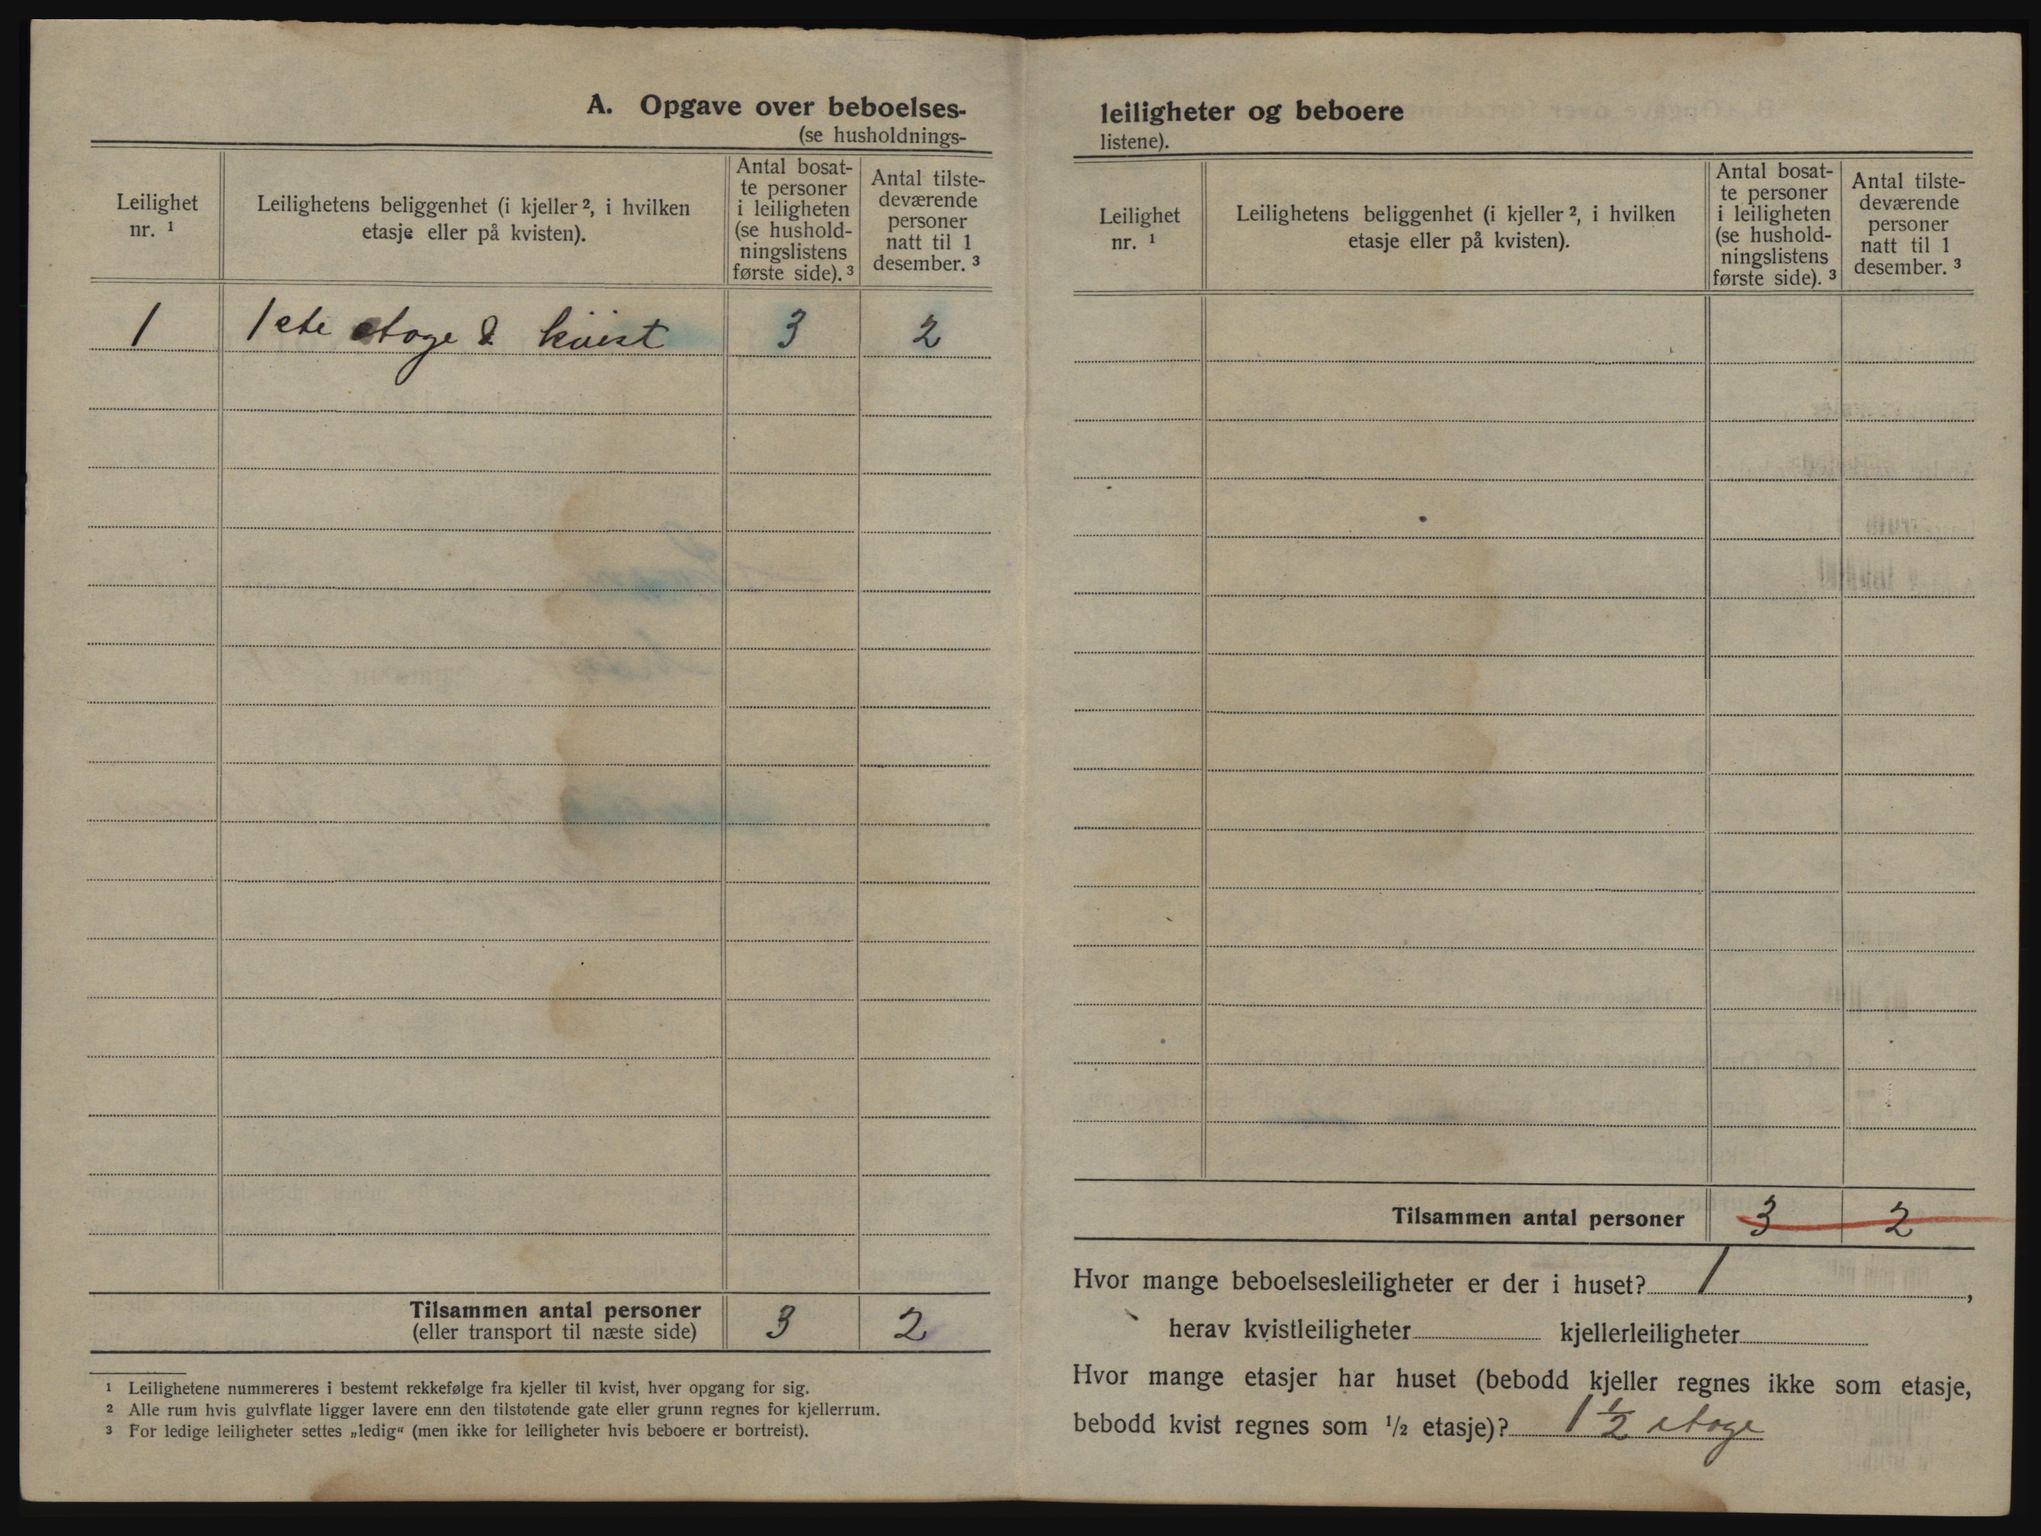 A. Opgave over beboelses-
(se husholdnings-
Leilighet
nr. ¹
Leilighetens beliggenhet (i kjeller ², i hvilken
etasje eller på kvisten).
Antal bosat-
te personer
i leiligheten
(se hushold-
ningslistens
første side). ³
Antal tilste-
deværende
personer
natt til 1
desember. ³
1 1ste etage & kvist 3 2
Tilsammen antal personer 3 2
(eller transport til næste side)
¹ Leilighetene nummereres i bestemt rekkefølge fra kjeller til kvist, hver opgang for sig.
² Alle rum hvis gulvflate ligger lavere enn den tilstøtende gate eller grunn regnes for kjellerrum.
³ For ledige leiligheter settes „ledig“ (men ikke for leiligheter hvis beboere er bortreist).
leiligheter og beboere
listene).
Leilighet
nr. ¹
Leilighetens beliggenhet (i kjeller ², i hvilken
etasje eller på kvisten).
Antal bosat-
te personer
i leiligheten
(se hushold-
ningslistens
første side). ³
Antal tilste-
deværende
personer
natt til 1
desember. ³
Tilsammen antal personer 3 2
Hvor mange beboelsesleiligheter er der i huset? 1 ,
herav kvistleiligheter kjellerleiligheter
Hvor mange etasjer har huset (bebodd kjeller regnes ikke som etasje,
bebodd kvist regnes som ½ etasje)? 1 ½ etage